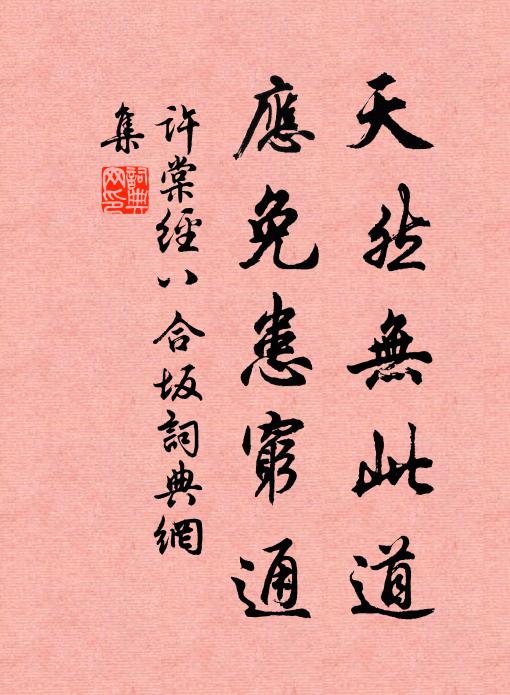 天然無此道
應免患窮通
許棠經八合坂詞典網
集
詞典網印